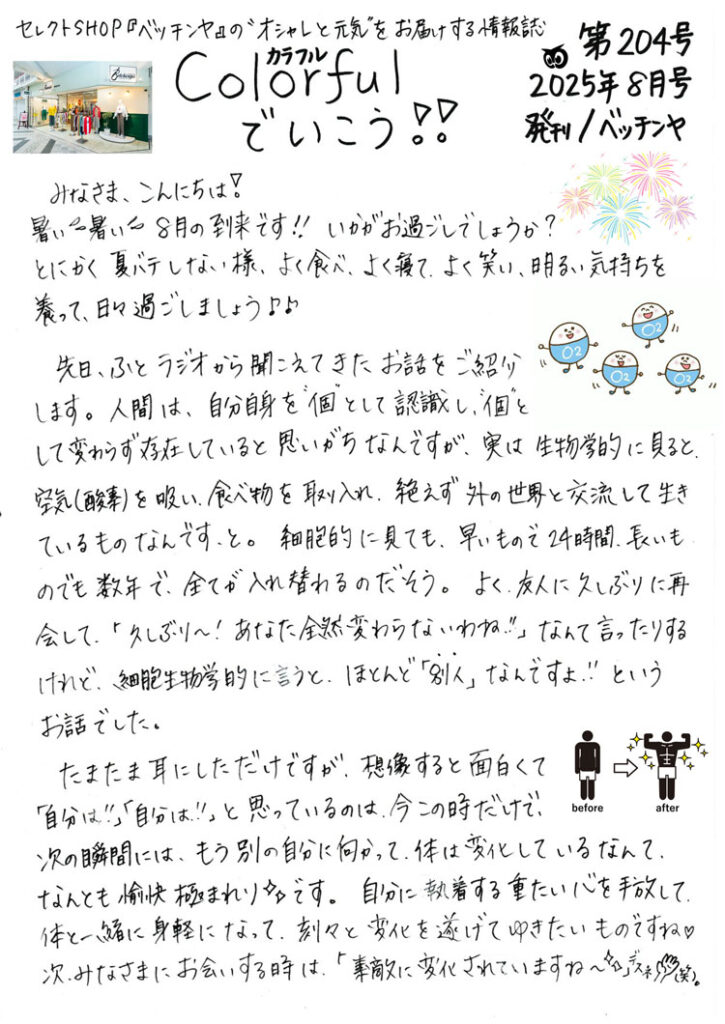 セレクトSHOP『ベッチンヤ』の“オシャレと元気”をお届けする情報誌
カラフル
Colorful
でいこう!!
第204号
2025年8月号
発刊/ベッチンヤ
みなさま、こんにちは!
暑い〜暑い〜8月の到来です!! いかがお過ごしでしょうか?
とにかく夏バテしない様、よく食べ、よく寝て、よく笑い、明るい気持ちを
養って、日々過ごしましょう♪♪
先日、ふとラジオから聞こえてきたお話をご紹介
します。人間は、自分自身を“個”として認識し、“個”と
して変わらず存在していると思いがちなんですが、実は生物学的に見ると、
空気(酸素)を吸い、食べ物を取り入れ、絶えず外の世界と交流して生き
ているものなんです、と。細胞的に見ても、早いもので24時間、長いも
のでも数年で、全てが入れ替わるのだそう。よく、友人に久しぶりに再
会して、「久しぶり〜!あなた全然変わらないわね!!」なんて言ったりする
けれど、細胞生物学的に言うと、ほとんど「別人」なんですよ!!という
お話でした。
O2
O2
O2
O2
たまたま耳にしただけですが、想像すると面白くて
「自分は!!」「自分は!!」と思っているのは、今この時だけで、
次の瞬間には、もう別の自分に向かって、体は変化しているなんて、
なんとも愉快極まれりです。自分に執着する重たい心を手放して、
体と一緒に身軽になって、刻々と変化を遂げてゆきたいものですね♡
次、みなさまにお会いする時は、「素敵に変化されていますね〜」デスネ(笑)。
before
after